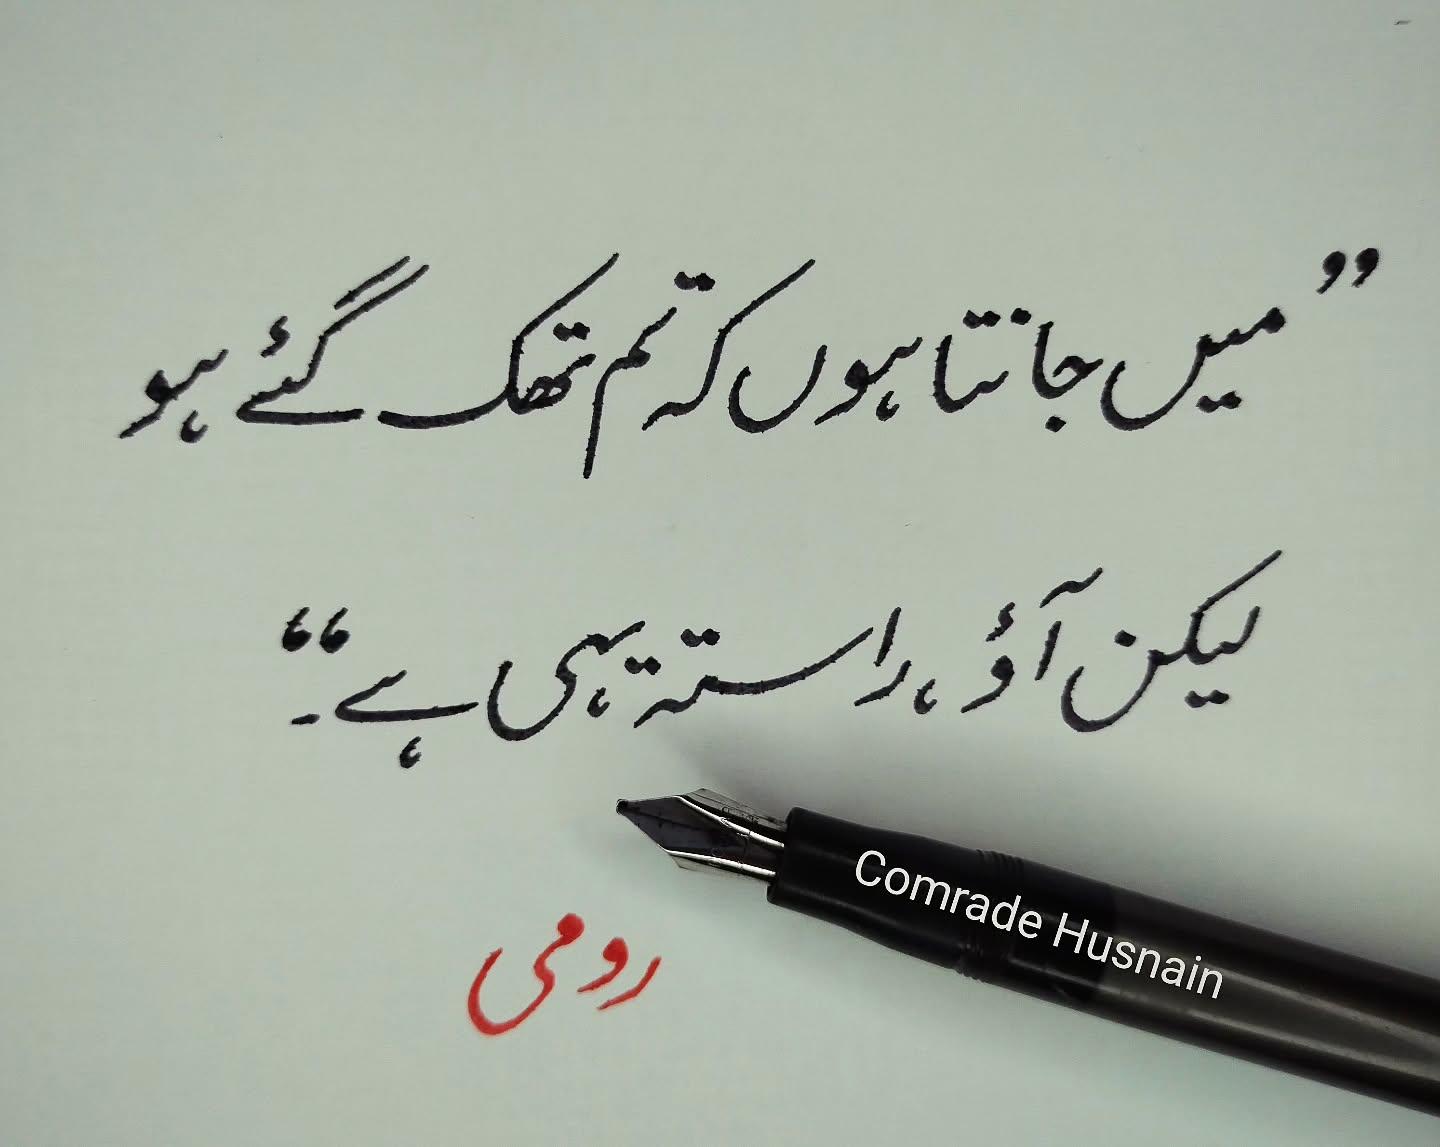 ”میں جانتا ہوں کہ تم تھک گئے ہو
لیکن آؤ، راستہ یہی ہے۔“
رومی
Comrade Husnain